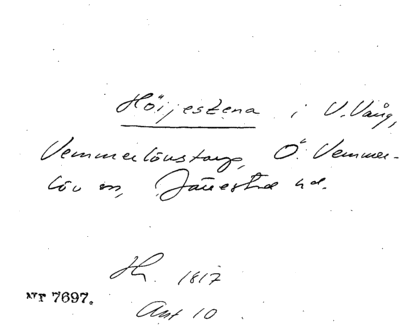 Höijestena i V. Vång,
Vemmerlövstorp, Ö. Vemmer-
löv sn, Järrestad hd.
Hh. 1817
Nr 7697.
Akt 10